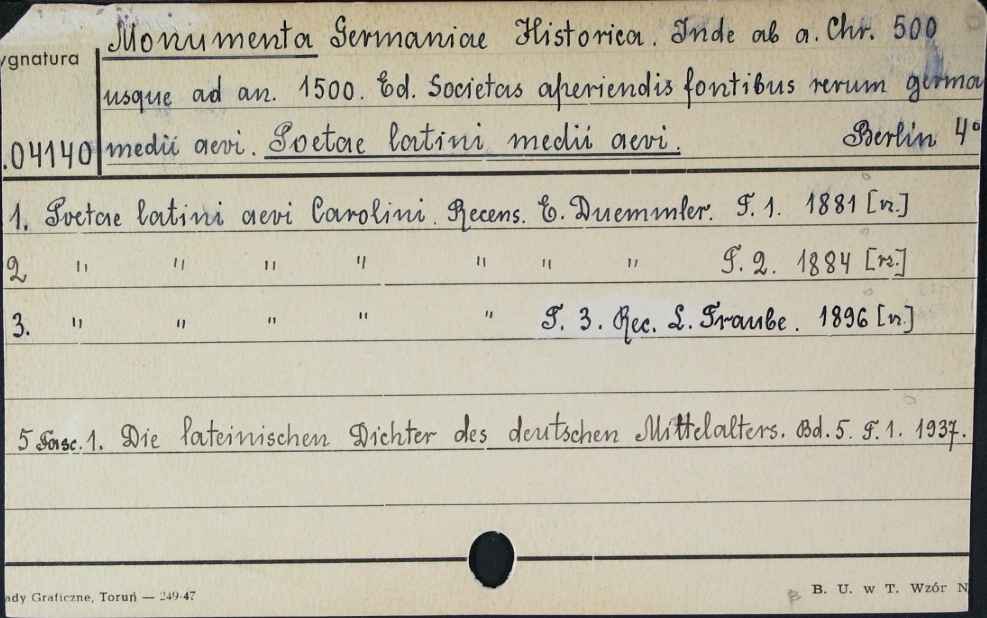 Monumenta Germaniae Historica. Inde ab a. Chr. 500
ygnatura
usque ad an. 1500. Ed. Societas aperiendis fontibus rerum germa
.04140 medii aevi. Poetae latini medii aevi. Berlin 4°
1. Poetae latini aevi Carolini. Recens. E. Duemmler. T. 1. 1881 [n.]
2 " " " " " " " T. 2. 1884 [n.]
3. " " " " " T. 3. Rec. L. Traube. 1896 [n.]
5 Fasc. 1. Die lateinischen Dichter des deutschen Mittelalters. Bd. 5. F. 1. 1937.
ady Graficzne, Toruń — 249-47
B. U. w T. Wzór N